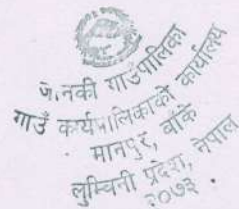 जानकी गाउँपालिका
गाउँ कार्यपालिकाको कार्यालय
मानपुर, बाँके
लुम्बिनी प्रदेश, नेपाल
२०७३